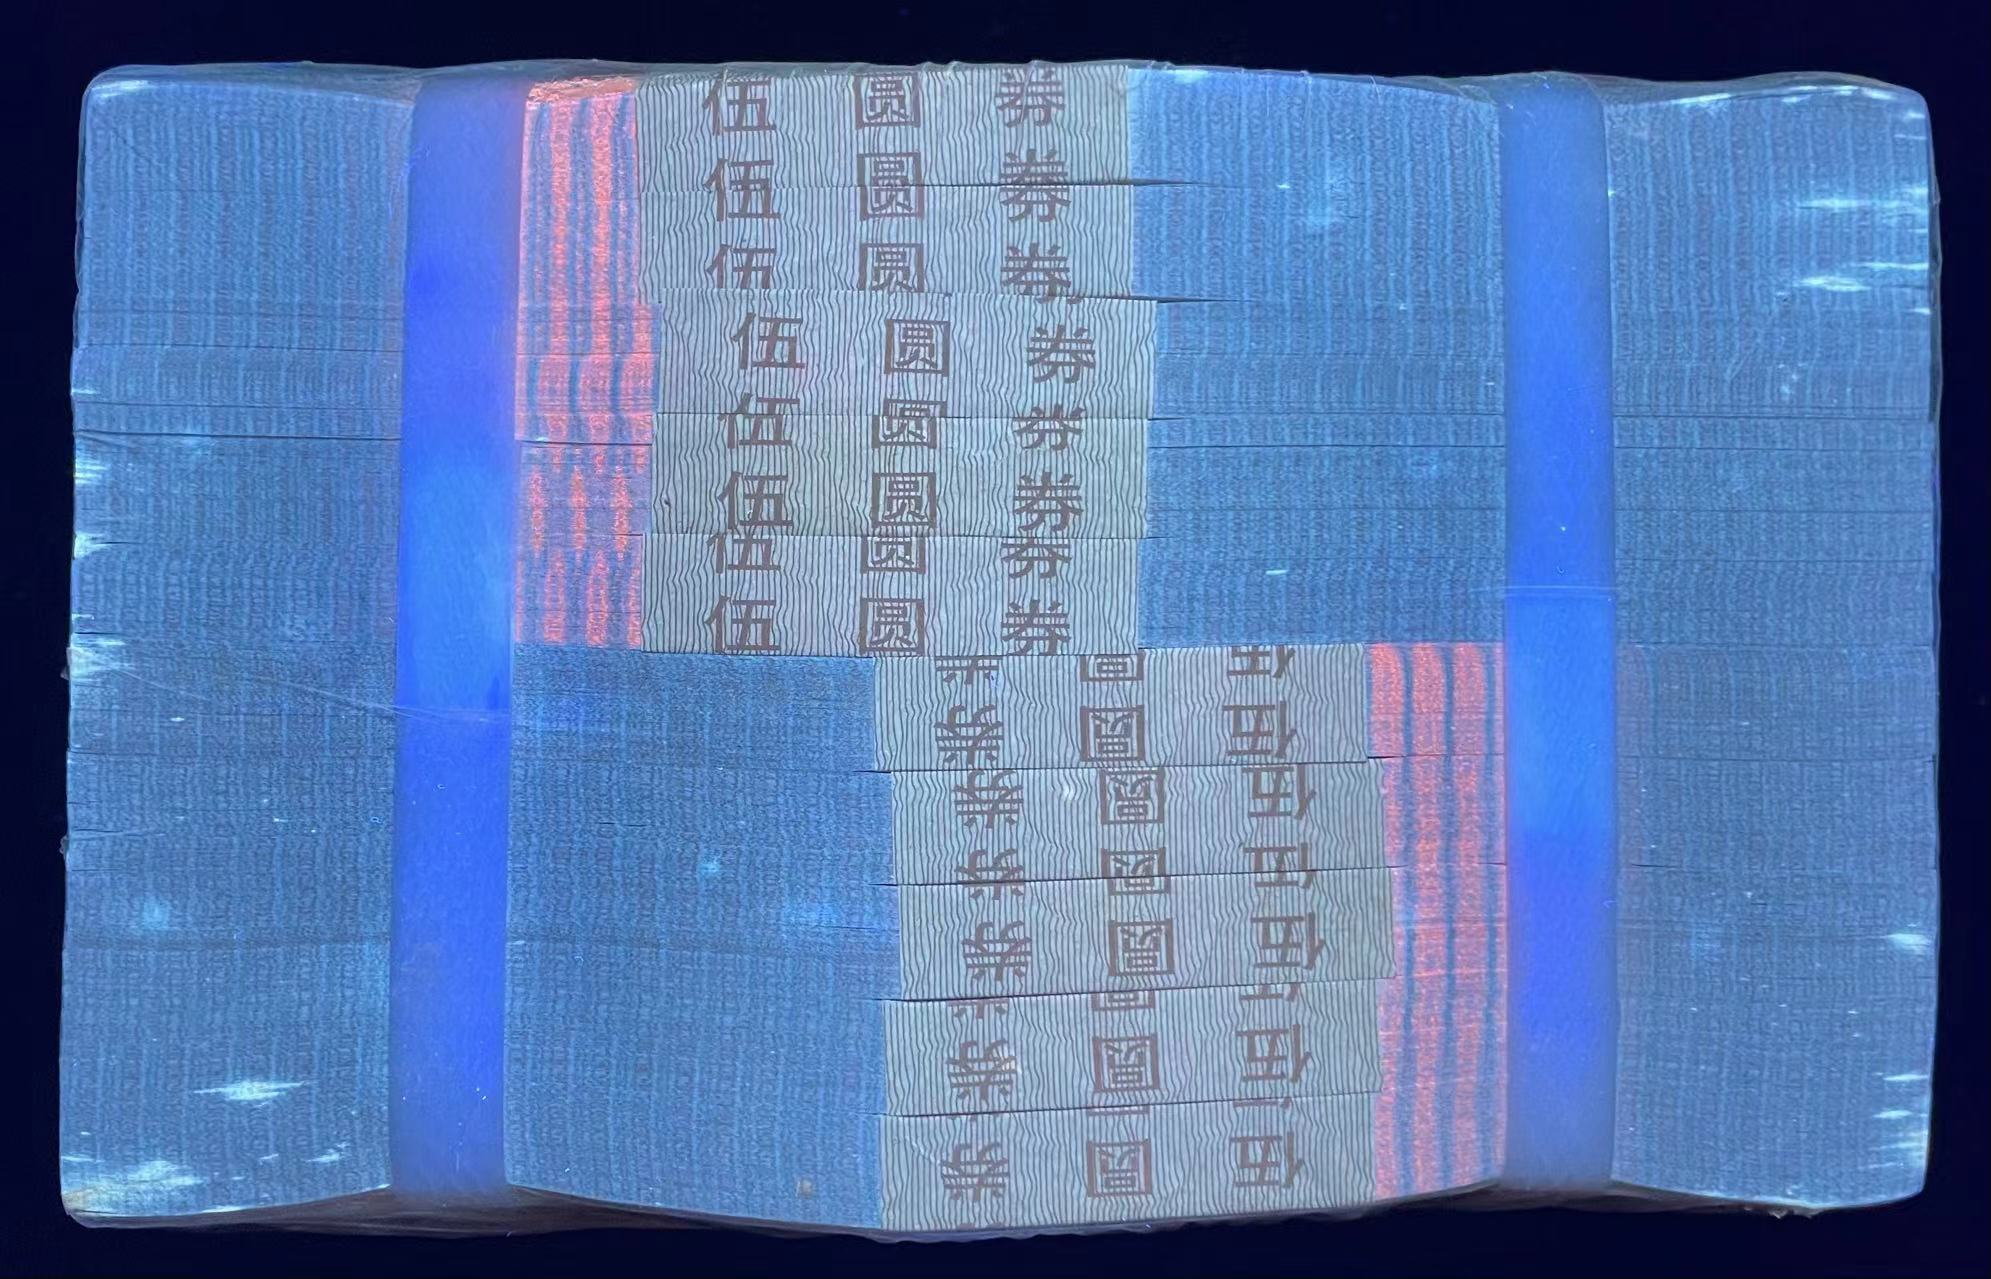 伍 圆 券
伍 圆 券
伍 圆 券
伍 圆 券
伍 圆 券
伍 圆 券
伍 圆 券
伍 圆 券
伍 圆 券
伍 圆 券
伍 圆 券
伍 圆 券
伍 圆 券
伍 圆 券